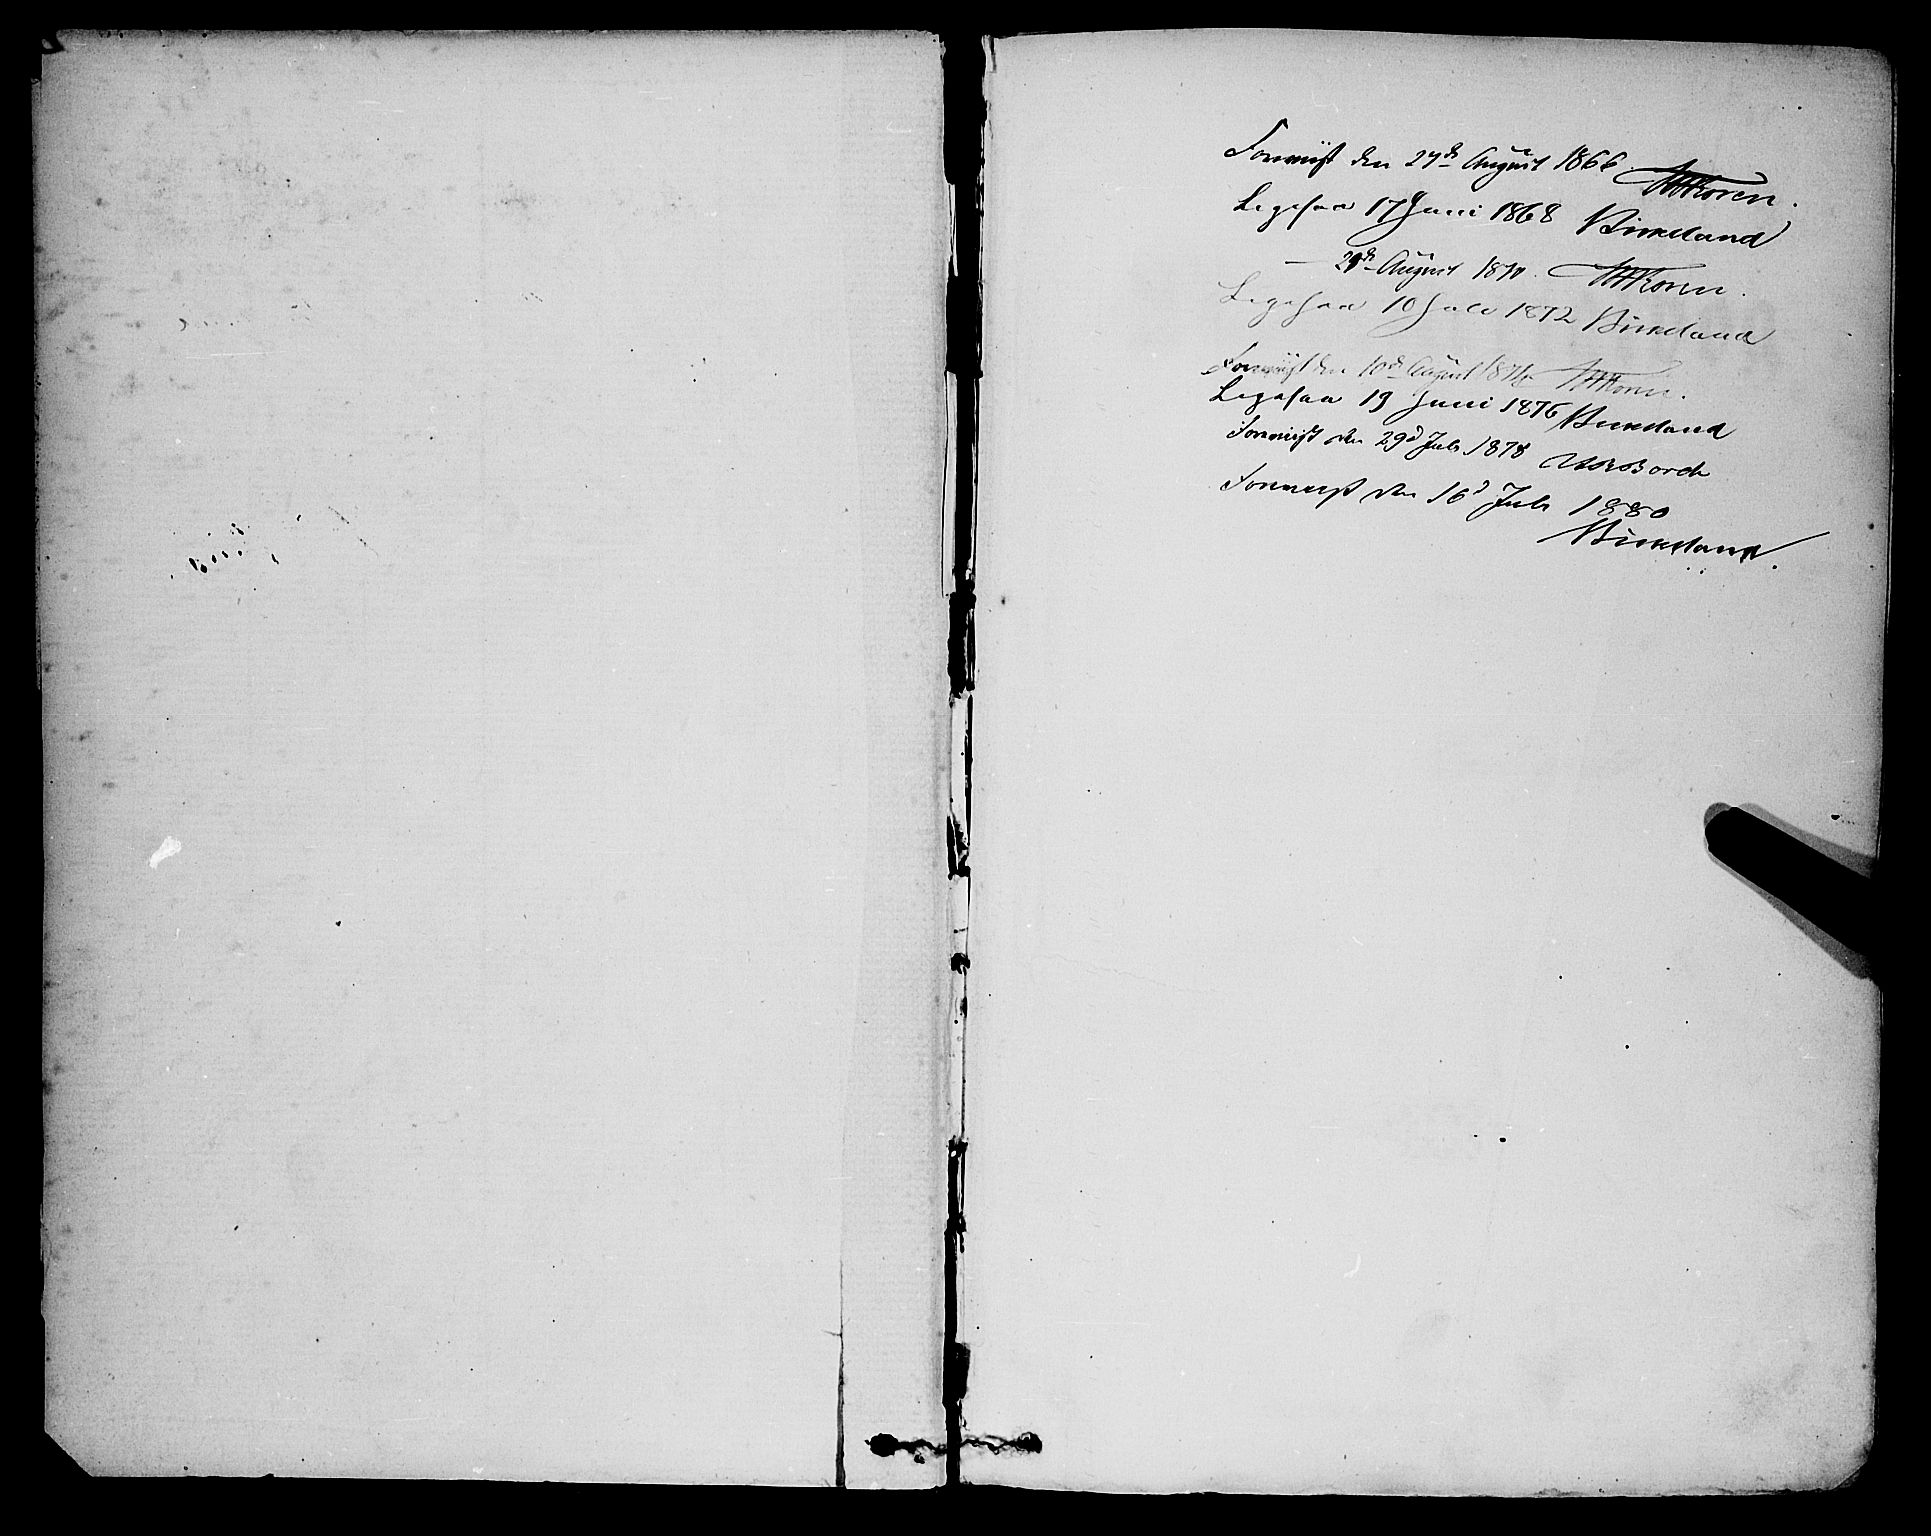 Foreviist den 27de August 1866 Koren.
Ligesaa 17 Juni 1868 Birkeland
— de August 1870. Koren.
Ligesaa 10 Juli 1872 Birkeland
Foreviist den 10de August 1874 Koren.
Ligesaa 19 Juni 1876 Birkeland
Foreviist den 29d Juli 1878
Foreviist den 16d Juli 1880
Birkeland.